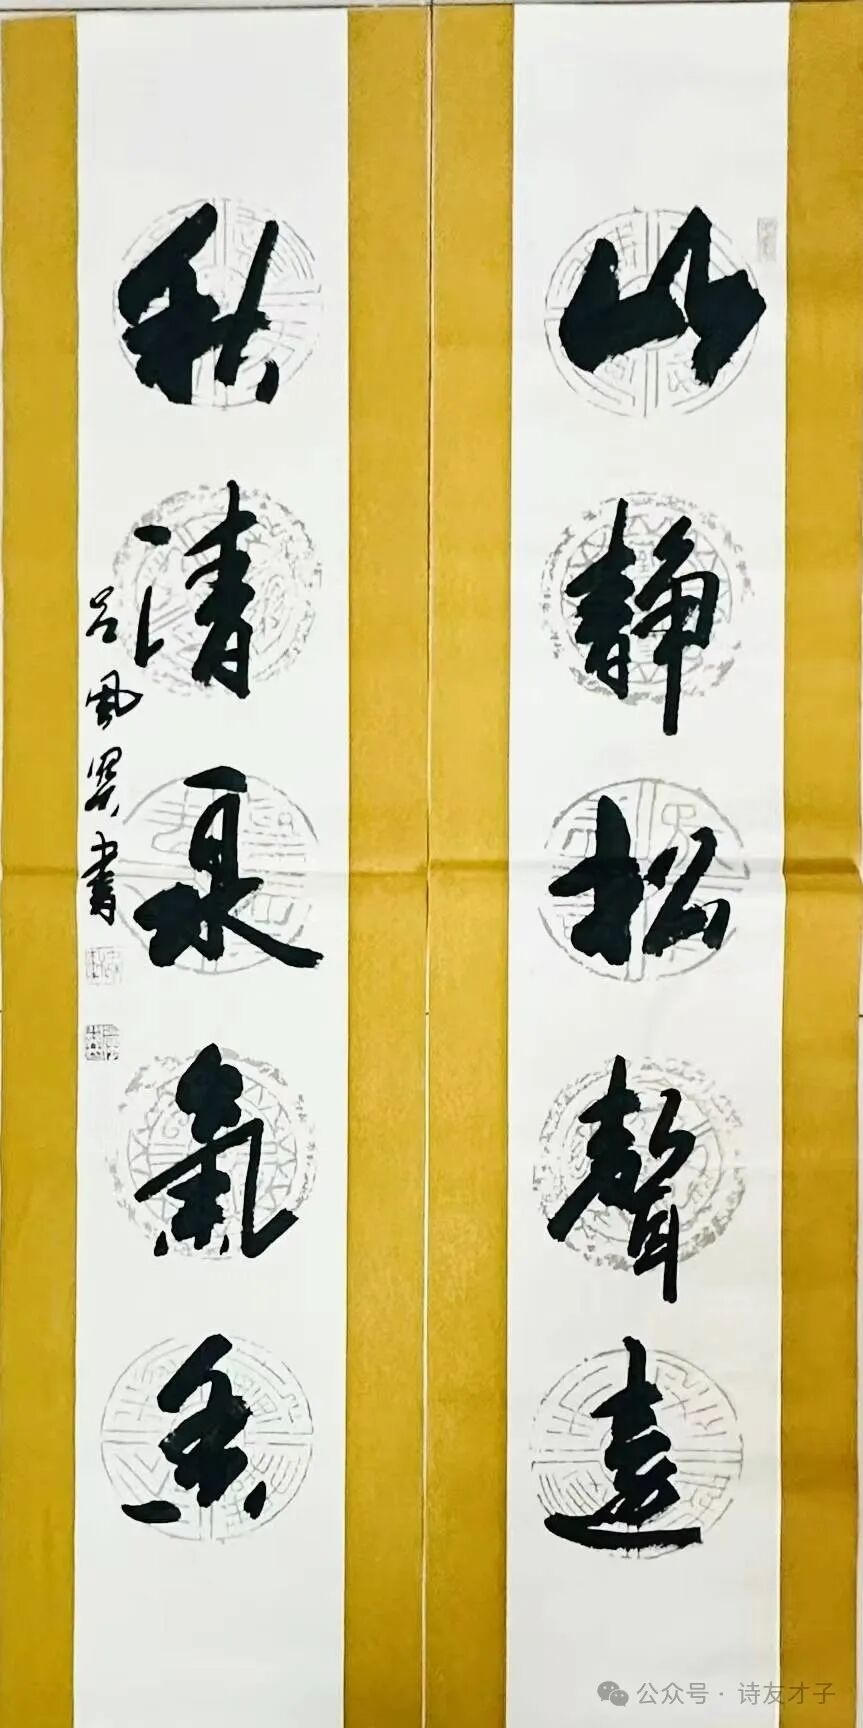 山静松聲遠
秋清泉氣香
吕風書
公众号 · 诗友才子